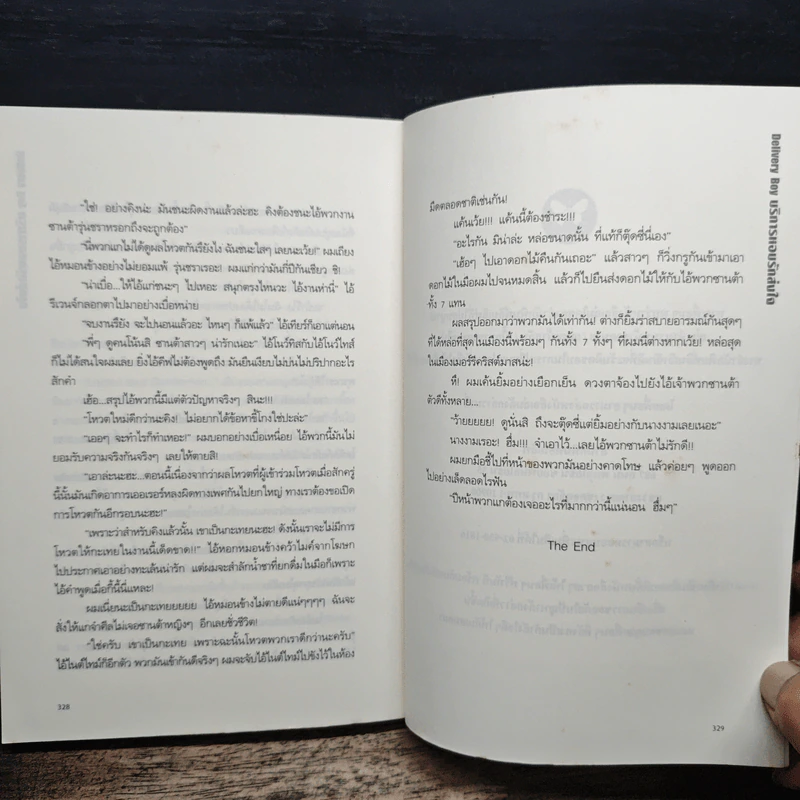 "ใช่! อย่างคิงน่ะ มันชนะผิดงานแล้วล่ะฮะ คิงต้องชนะไอ้พวกงาน
ซานต้ารุ่นชราหรอกถึงจะถูกต้อง"
"นี่พวกแกไม่ได้ดูผลโหวตกันรึยังไง ฉันชนะใสๆ เลยนะเว้ย!" ผมเถียง
ไอ้หมอนข้างอย่างไม่ยอมแพ้ รุ่นชราเรอะ! ผมแก่กว่ามันกี่ปีกันเชียว ชิ!
"น่าเบื่อ...ให้ไอ้แก่ชนะๆ ไปเหอะ สนุกตรงไหนวะ ไอ้งานห่านี่" ไอ้
รีเวนจ์กลอกตาไปมาอย่างเบื่อหน่าย
"จบงานรึยัง จะไปนอนแล้วอะ ไหนๆ ก็แพ้แล้ว" ไอ้เทียร์ก็เอาแต่นอน
"พี่ๆ ดูคนโน้นสิ ซานต้าสาวๆ น่ารักเนอะ" ไอ้โนว์ทิสกับไอ้โนว์ไทส์
ก็ไม่ได้สนใจผมเลย ยิ่งไอ้คีฟไม่ต้องพูดถึง มันยืนเงียบไม่บ่นไม่ปริปากอะไร
สักคำ
เฮ้อ...สรุปไอ้พวกนี้มีแต่ตัวปัญหาจริงๆ สินะ!!!
"โหวตใหม่ดีกว่านะคิง! ไม่อยากได้ข้อหาขี้โกงใช่ปะล่ะ"
"เออๆ จะทำไรก็ทำเหอะ!" ผมบอกอย่างเบื่อเหนื่อย ไอ้พวกนี้มันไม่
ยอมรับความจริงกันจริงๆ เลยให้ตายสิ!
"เอาล่ะนะฮะ...ตอนนี้เนื่องจากว่าผลโหวตที่ผู้เข้าร่วมโหวตเมื่อสักครู่
นี้นั้นมันเกิดอาการเออเรอร์หลงผิดทางเพศกันไปยกใหญ่ ทางเราต้องขอเปิด
การโหวตกันอีกรอบนะฮะ!"
"เพราะว่าสำหรับคิงแล้วนั้น เขาเป็นกะเทยนะฮะ! ดังนั้นเราจะไม่มีการ
โหวตให้กะเทยในงานนี้เด็ดขาด!!" ไอ้หอกหมอนข้างคว้าไมค์จากโฆษก
ไปประกาศเอาอย่างทะเล้นน่ารัก แต่ผมจะสำลักน้ำชาที่ยกดื่มในมือก็เพราะ
ไอ้คำพูดเมื่อกี้นี้นี่แหละ!
ผมเนี่ยนะเป็นกะเทยยยยย ไอ้หมอนข้างไม่ตายดีแน่ๆๆๆๆ ฉันจะ
สั่งให้แกจำศีลไม่เจอซานต้าหญิงๆ อีกเลยชั่วชีวิต!
"ใช่ครับ เขาเป็นกะเทย เพราะฉะนั้นโหวตพวกเราดีกว่านะครับ"
ไอ้ไนต์ไทม์ก็อีกตัว พวกมันเข้ากันดีจริงๆ ผมจะจับไอ้ไนต์ไทม์ไปขังไว้ในห้อง
328
Delivery Boy บริการหอบรักส่งใจ
มืดตลอดชาติเช่นกัน!
แค้นเว้ย!!! แค้นนี้ต้องชำระ!!!
"อะไรกัน มิน่าล่ะ หล่อขนาดนั้น ที่แท้ก็ตุ๊ดซี่นี่เอง"
"เฮ้อๆ ไปเอาดอกไม้คืนกันเถอะ" แล้วสาวๆ ก็วิ่งกรูกันเข้ามาเอา
ดอกไม้ในมือผมไปจนหมดสิ้น แล้วก็ไปยืนส่งดอกไม้ให้กับไอ้พวกซานต้า
ทั้ง 7 แทน
ผลสรุปออกมาว่าพวกมันได้เท่ากัน! ต่างก็ยิ้มร่าสบายอารมณ์กันสุดๆ
ที่ได้หล่อที่สุดในเมืองนี้พร้อมๆ กันทั้ง 7 ทั้งๆ ที่ผมนี่ต่างหากเว้ย! หล่อสุด
ในเมืองเมอร์รีคริสต์มาสน่ะ!
หึ! ผมเค้นยิ้มอย่างเยือกเย็น ดวงตาจ้องไปยังไอ้เจ้าพวกซานต้า
ตัวดีทั้งหลาย...
"ว้ายยยยย! ดูนั่นสิ ถึงจะตุ๊ดซี่แต่ยิ้มอย่างกับนางงามเลยเนอะ"
นางงามเรอะ! ฮึ่ม!!! จำเอาไว้...เลยไอ้พวกซานต้าไม่รักดี!!
ผมยกมือชี้ไปที่หน้าของพวกมันอย่างคาดโทษ แล้วค่อยๆ พูดออก
ไปอย่างเล็ดลอดไรฟัน
"ปีหน้าพวกแกต้องเจออะไรที่มากกว่านี้แน่นอน ฮึ่มๆ"
The End
329